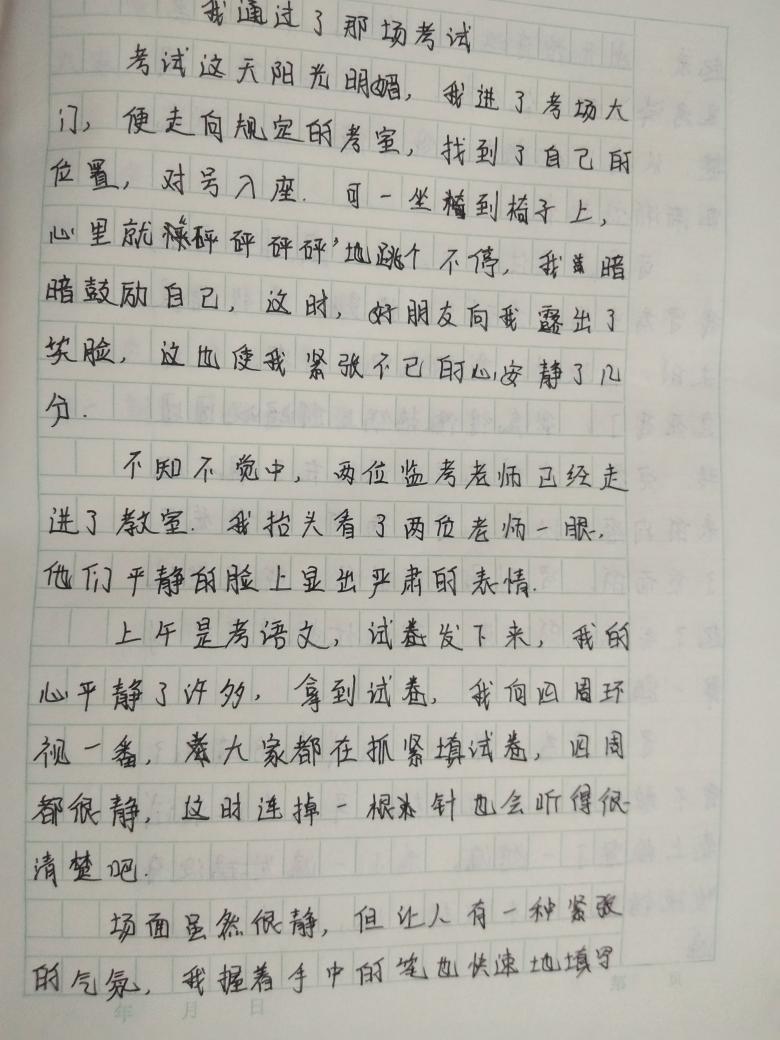 我通过了那场考试
考试这天阳光明媚，我进了考场大
门，便走向规定的考室，找到了自己的
位置，对号入座.可一坐到椅子上，
心里就砰砰砰砰地跳个不停，我暗
暗鼓励自己，这时，好朋友向我露出了
笑脸，这也使我紧张不已的心安静了几
分.
不知不觉中，两位监考老师已经走
进了教室.我抬头看了两位老师一眼，
他们平静的脸上显出严肃的表情.
上午是考语文，试卷发下来，我的
心平静了许多，拿到试卷，我向四周环
视一番，大家都在抓紧填试卷，四周
都很静，这时连掉一根针也会听得很
清楚吧.
场面虽然很静，但让人有一种紧张
的气氛，我握着手中的笔也快速地填写
年 月 日
第 页